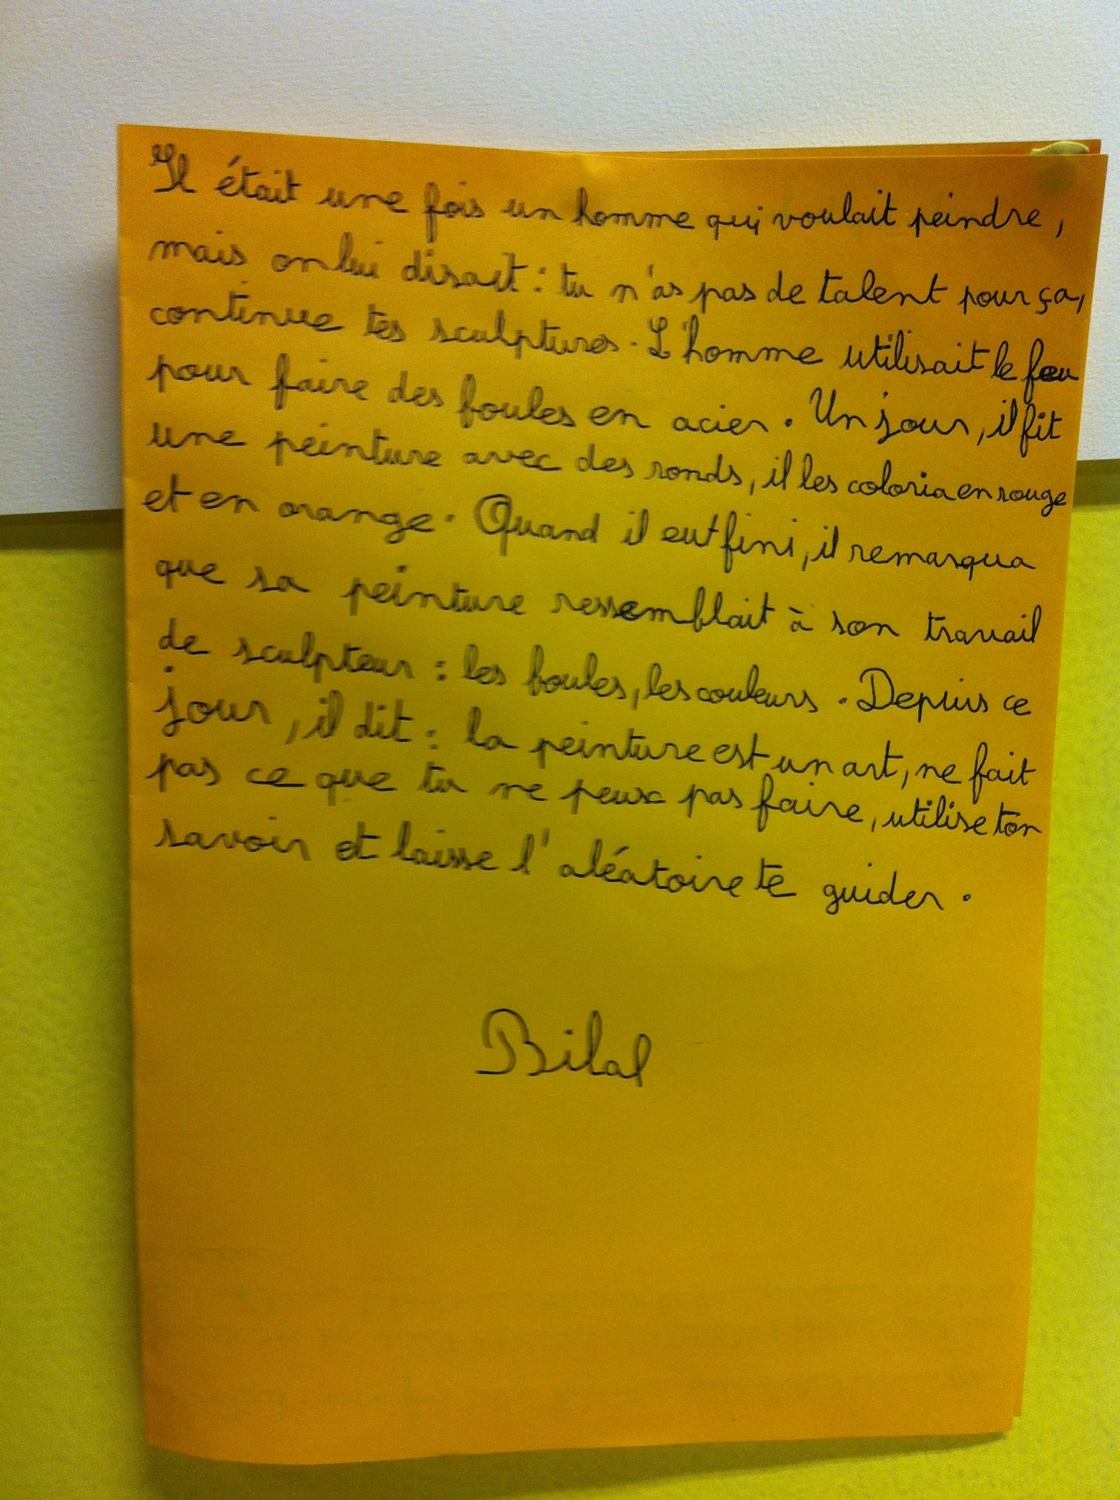 Il était une fois un homme qui voulait peindre,
mais on lui disait : tu n'as pas de talent pour ça,
continue tes sculptures. L'homme utilisait le feu
pour faire des boules en acier. Un jour, il fit
une peinture avec des ronds, il les coloria en rouge
et en orange. Quand il eut fini, il remarqua
que sa peinture ressemblait à son travail
de sculpteur : les boules, les couleurs. Depuis ce
jour, il dit : la peinture est un art, ne fait
pas ce que tu ne peux pas faire, utilise ton
savoir et laisse l'aléatoire te guider.
Bilal